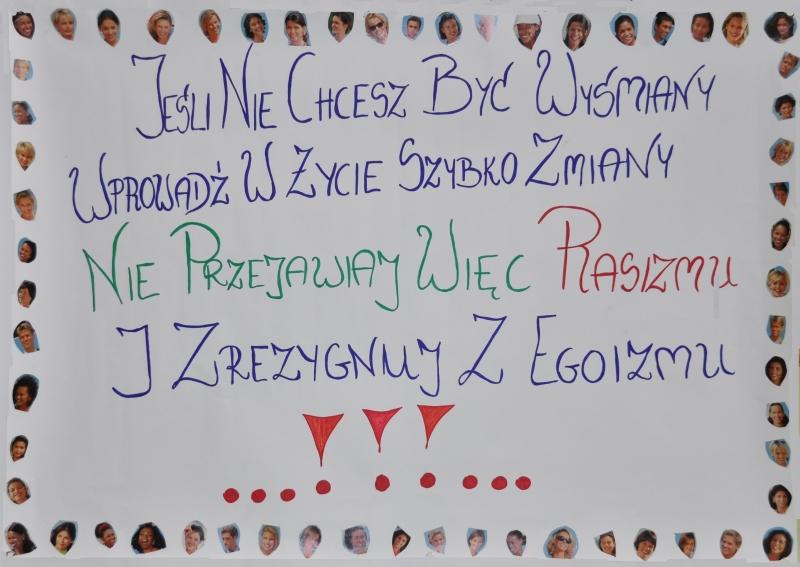 JEŚLI NIE CHCESZ BYĆ WYŚMIANY
WPROWADŹ W ŻYCIE SZYBKO ZMIANY
NIE PRZEJAWIAJ WIĘC RASIZMU
I ZREZYGNUJ Z EGOIZMU
...!!!...